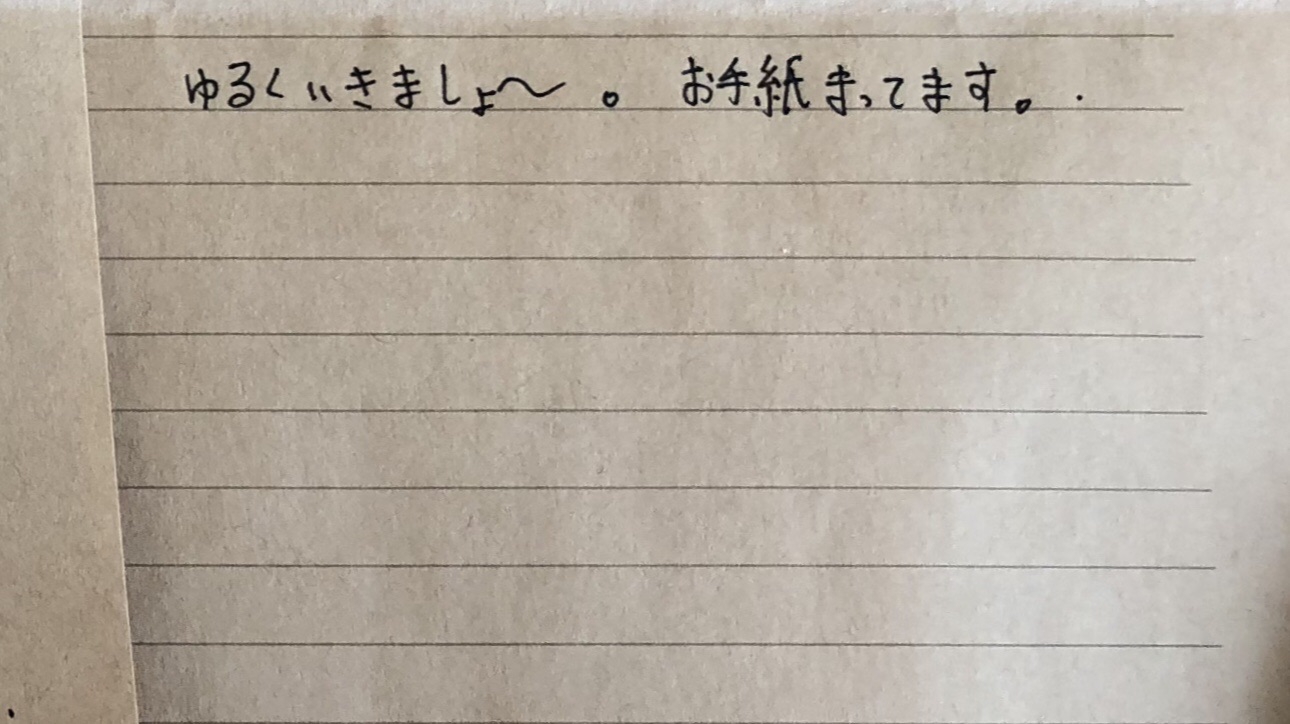 ゆるくいきましょ〜。 お手紙まってます。